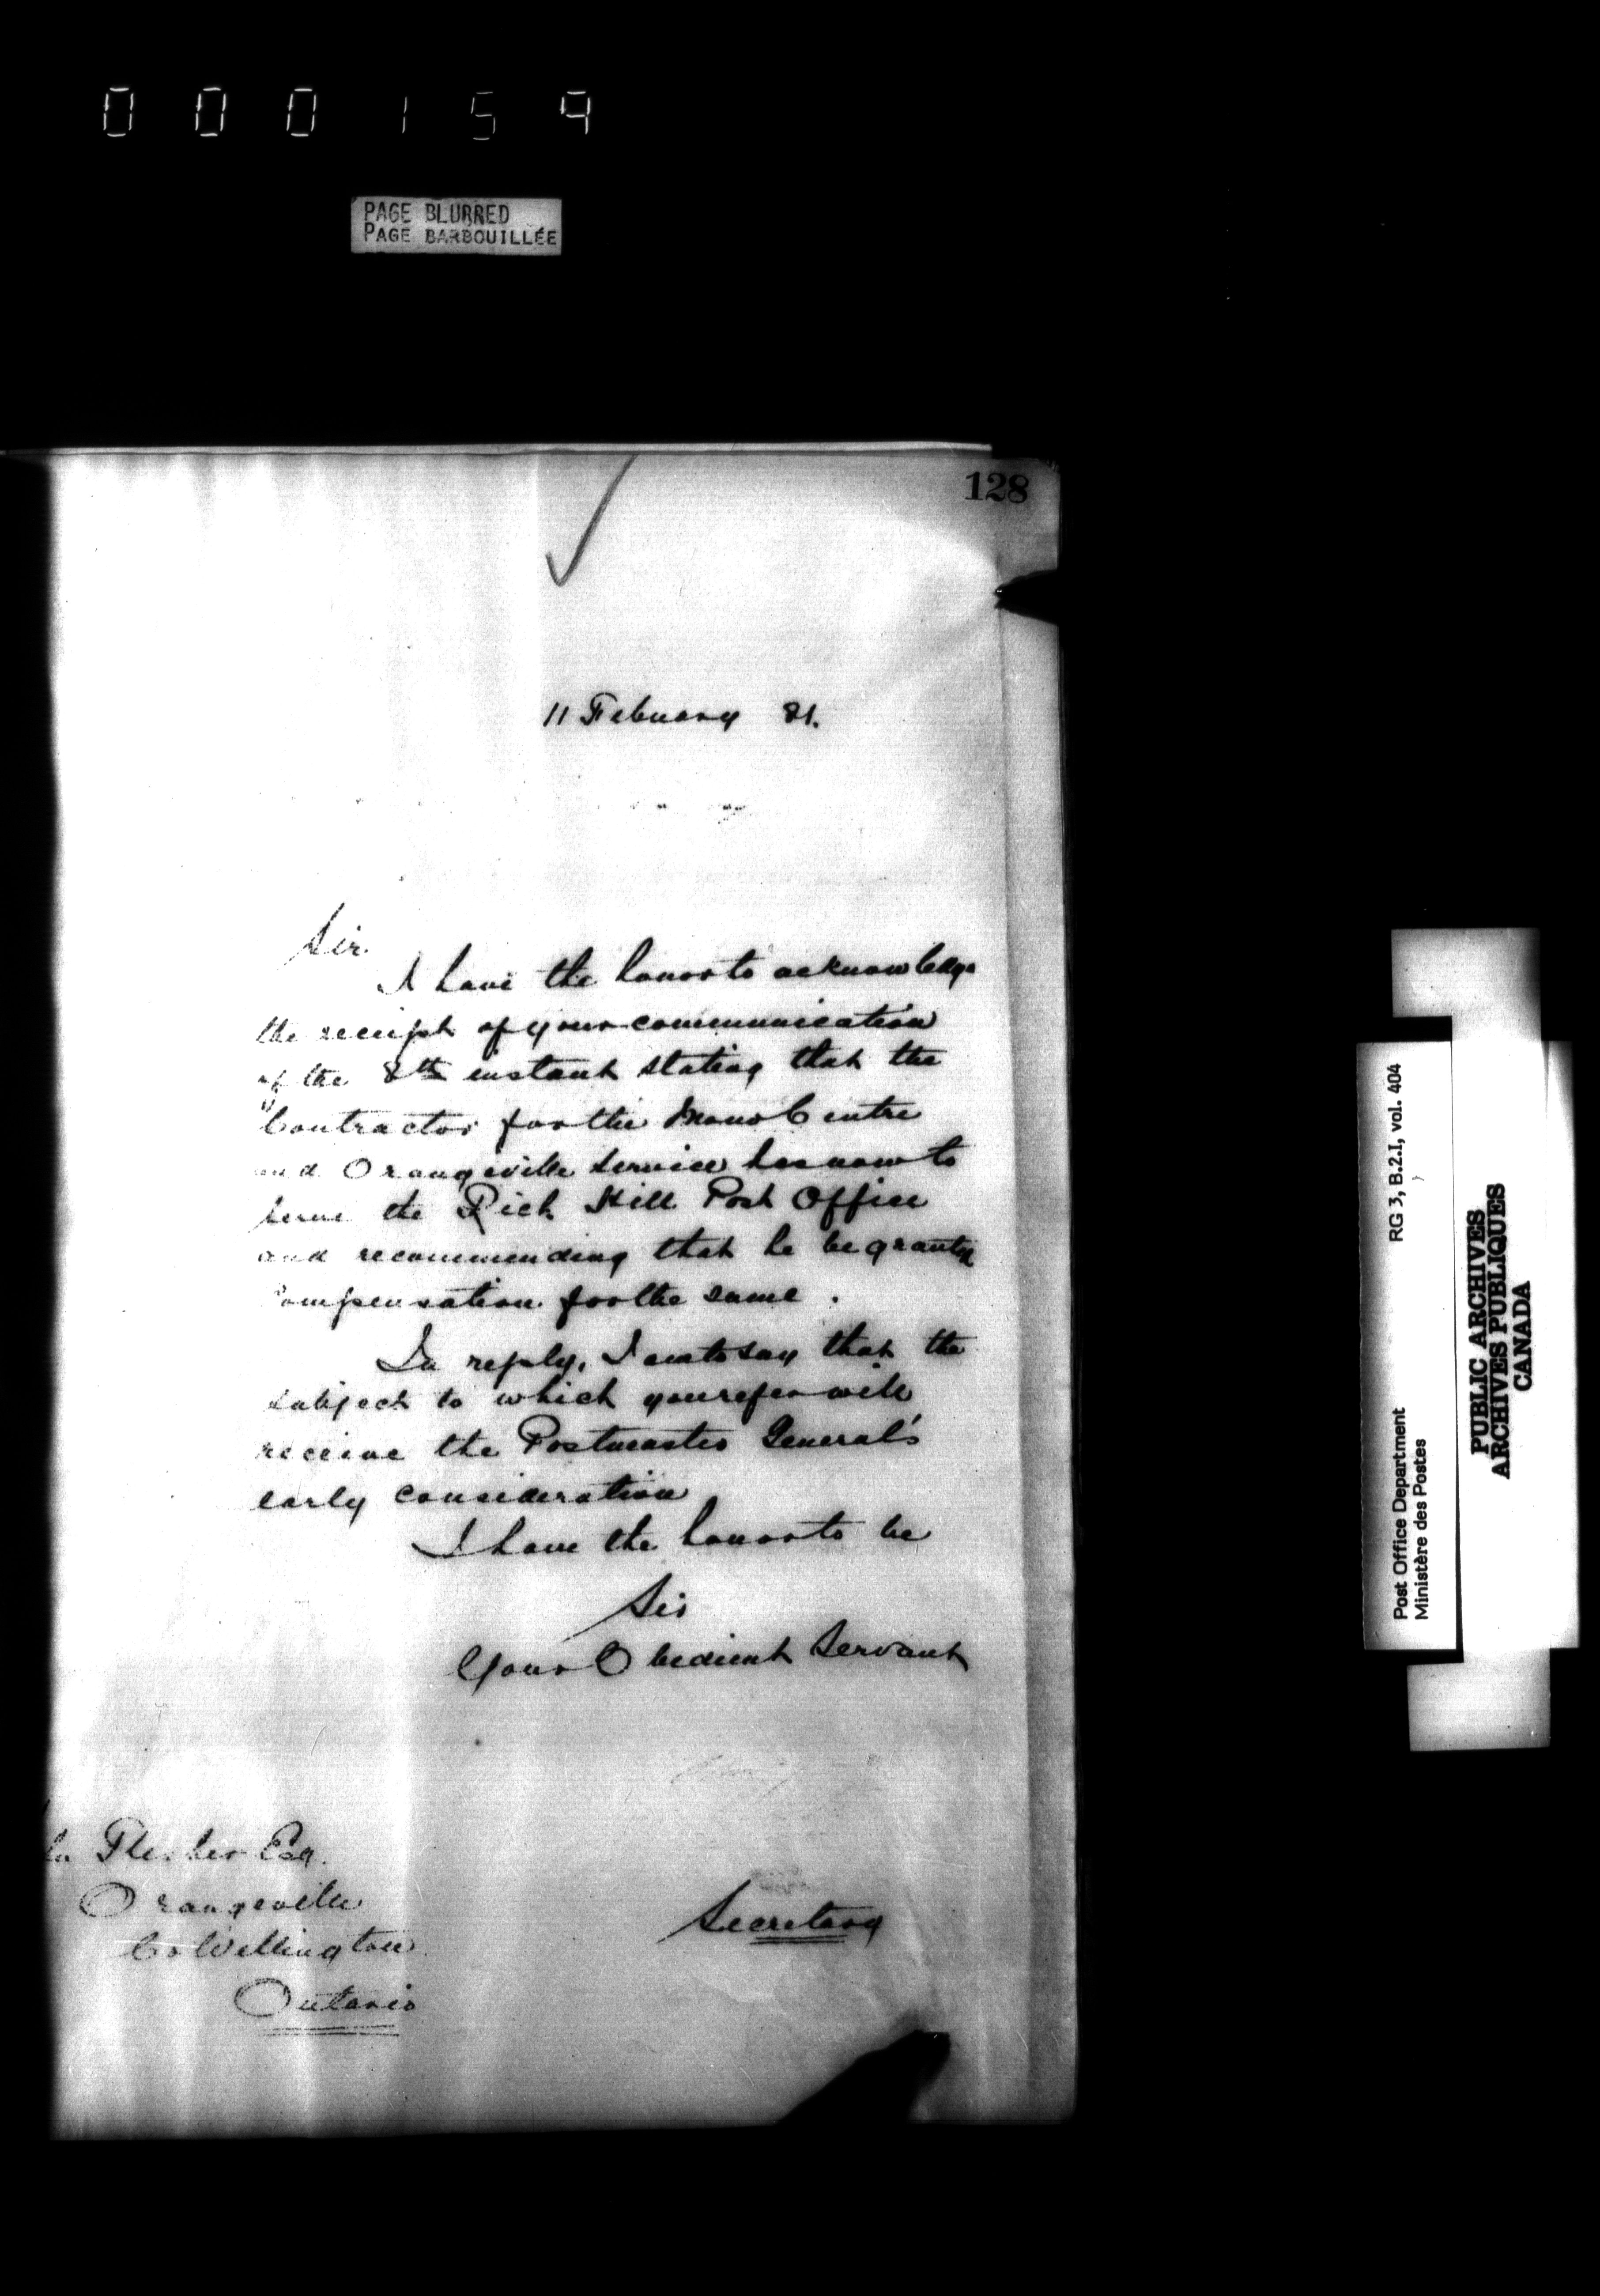 000159
PAGE BLURRED
PAGE BARBOUILLÉE
128
11 February 81.
Sir.
I have the honor to acknowledge
the receipt of your communication
of the 8th instant stating that the
Contractor for the Mono Centre
and Orangeville Service has now to
serve the Rich Hill Post Office
and recommending that he be granted
Compensation for the same.
In reply, I am to say that the
subject to which you refer will
receive the Postmaster General's
early consideration
I have the honor to be
Sir
Your Obedient Servant
Esq.
Orangeville
Co Wellington
Ontario
Secretary
Post Office Department
Ministère des Postes
RG 3, B.2.I, vol. 404
PUBLIC ARCHIVES
ARCHIVES PUBLIQUES
CANADA